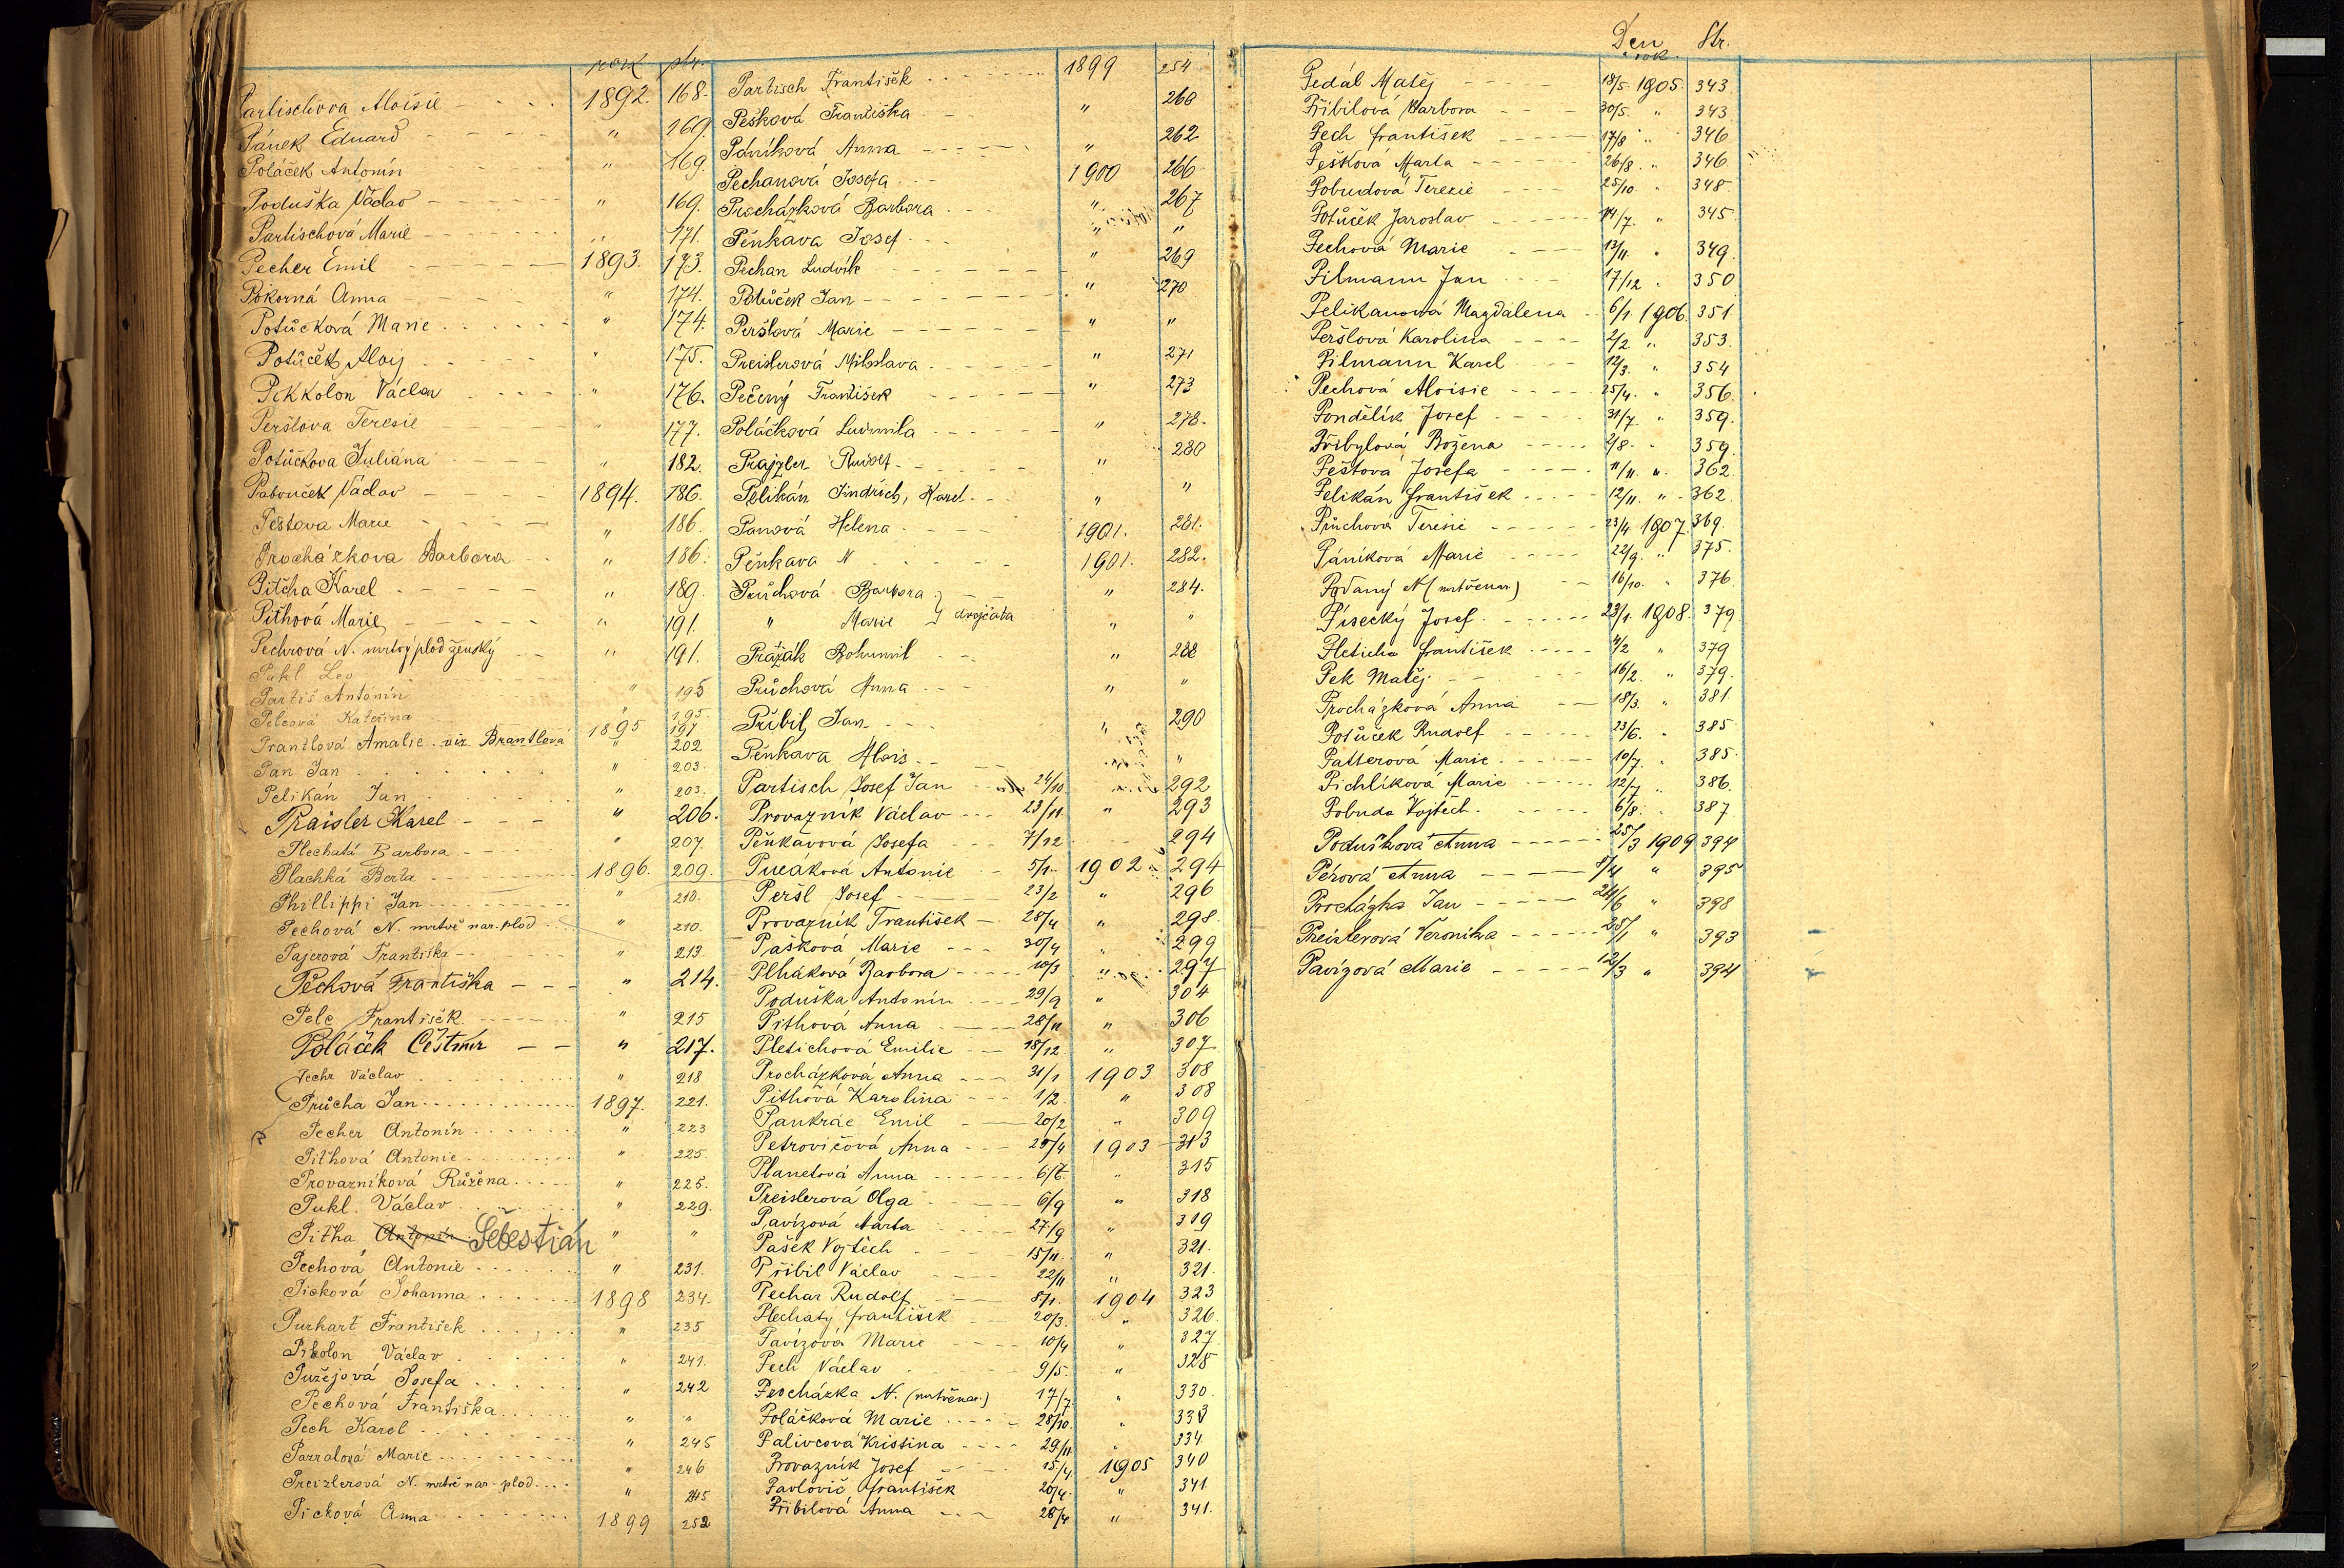 rok str.
Partischova Aloisie 1892. 168.
Pánek Eduard " 169.
Poláček Antonín " 169.
Poduška Václav " 169.
Partischová Marie " 171.
Pecher Emil 1893. 173.
Pokorná Anna " 174.
Potůčková Marie " 174.
Potůček Aloij " 175.
Pikkolon Václav " 176.
Perštova Teresie " 177.
Potůčkova Juliána " 182.
Pabouček Václav 1894. 186.
Peštova Marie " 186.
Procházkova Barbora " 186.
Pitcha Karel " 189.
Pithová Marie " 191.
Pechrová N. mrtvý plod ženský " 191.
Pukl Leo
Partiš Antonín " 195
Pelcová Kateřina " 195.
Prantlová Amalie viz Brantlová 1895 197
" 202
Pan Jan " 203.
Pelikán Jan " 203.
Praisler Karel " 206.
Plechatá Barbora " 207.
Plachká Berta 1896. 209.
Phillippi Jan " 210.
Pechová N. mrtvě nar. plod " 210.
Pajerová Františka " 213
Pecková Františka " 214.
Pelc František " 215
Poláček Čestmír " 217.
Pechr Václav " 218
Průcha Jan 1897. 221.
Pecher Antonín " 223
Pithová Antonie " 225.
Provazníková Růžena " 225.
Pukl Václav " 229.
Pitha Antonín Šebestián " "
Pechová Antonie " 231.
Picková Johanna 1898 234.
Purkart František " 235
Pikolon Václav " 241.
Pužejová Josefa " 242
Pechová Františka " "
Pech Karel " 245
Pazralová Marie " 246
Preizlerová N. mrtvě nar. plod " 245
Picková Anna 1899 252
Partisch František 1899 254
Pešková Františka " 260
Páníková Anna " 262
Pechanová Josefa 1900 266
Procházková Barbora " 267
Pěnkava Josef " "
Pechan Ludvík " 269
Potůček Jan " 270
Perštová Marie " "
Preislerová Miloslava " 271
Pečený František " 273
Poláčková Ludmila " 278.
Prajzler Rudolf " 280
Pelikán Jindřich, Karel " "
Panová Helena 1901. 281.
Pěnkava N 1901. 282.
Průchová Barbora " 284.
" Marie } dvojčata " "
Pražák Bohumil " 288
Průchová Anna " "
Přibil Jan " 290
Pěnkava Alois "
Partisch Josef Jan 24/10 292
Provazník Václav 23/11 " 293
Pěnkavová Josefa 7/12 294
Pucáková Antonie 5/1 1902 294
Peršl Josef 23/2 " 296
Provazník František 28/4 " 298.
Pašková Marie 30/4 " 299
Plháková Barbora 10/3 " 297
Poduška Antonín 29/9 " 304
Pithová Anna 28/11 " 306
Pletichová Emilie 18/12 " 307
Procházková Anna 31/1 1903 308
Pithová Karolina 1/2 " 308
Pankrác Emil 20/2 " 309
Petrovičová Anna 25/4 1903 313
Planetová Anna 6/7. " 315
Preislerová Olga 6/9 " 318
Pavízová Marta 27/9 " 319
Pašek Vojtěch 15/11. " 321.
Přibil Václav 22/11 " 321.
Pechar Rudolf 8/1. 1904 323
Plechatý František 20/3. " 326.
Pavízová Marie 10/4 " 327.
Pech Václav 9/5. " 328
Procházka N. (mrtvě nar.) 17/7 " 330.
Poláčková Marie 28/10. " 333
Palivcová Kristina 29/11 " 334.
Provazník Josef 15/4 1905 340
Pavlovič František 20/4. " 341
Přibilová Anna 28/4 " 341.
Den rok. Str.
Pedál Matěj 18/5. 1905. 343
Přibilová Barbora 30/5. " 343.
Pech František 17/8 " 346
Pešková Marta 26/8. " 346
Pobudová Terezie 25/10. " 348.
Potůček Jaroslav 14/7. " 345
Pechová Marie 13/11. " 349.
Pilmann Jan 17/12 " 350
Pelikanová Magdalena 6/1. 1906. 351
Peršlová Karolina 2/2. " 353.
Pilmann Karel 12/3. " 354
Pechová Aloisie 25/4. " 356.
Pondělík Josef 31/7 " 359.
Přibylová Božena 2/8. " 359.
Peštová Josefa 11/11. " 362.
Pelikán František 12/11. " 362.
Průchová Teresie 23/4. 1907. 369.
Páníková Marie 22/9. " 375.
Podaný N (mrtvě nar.) 16/10. " 376.
Písecký Josef 23/1. 1908. 379.
Pleticha František 4/2 " 379
Pek Matěj 16/2. " 379.
Procházková Anna 18/3. " 381
Potůček Rudolf 23/6. " 385
Patterová Marie 10/7. " 385.
Pichlíková Marie 12/7 " 386.
Pobuda Vojtěch 6/8. " 387
Podušková Anna 25/3 1909 394
Pérová Anna 8/4 " 395
Procházka Jan 24/6 " 398
Preizlerová Veronika 25/1 " 393
Pavízová Marie 12/3 " 394